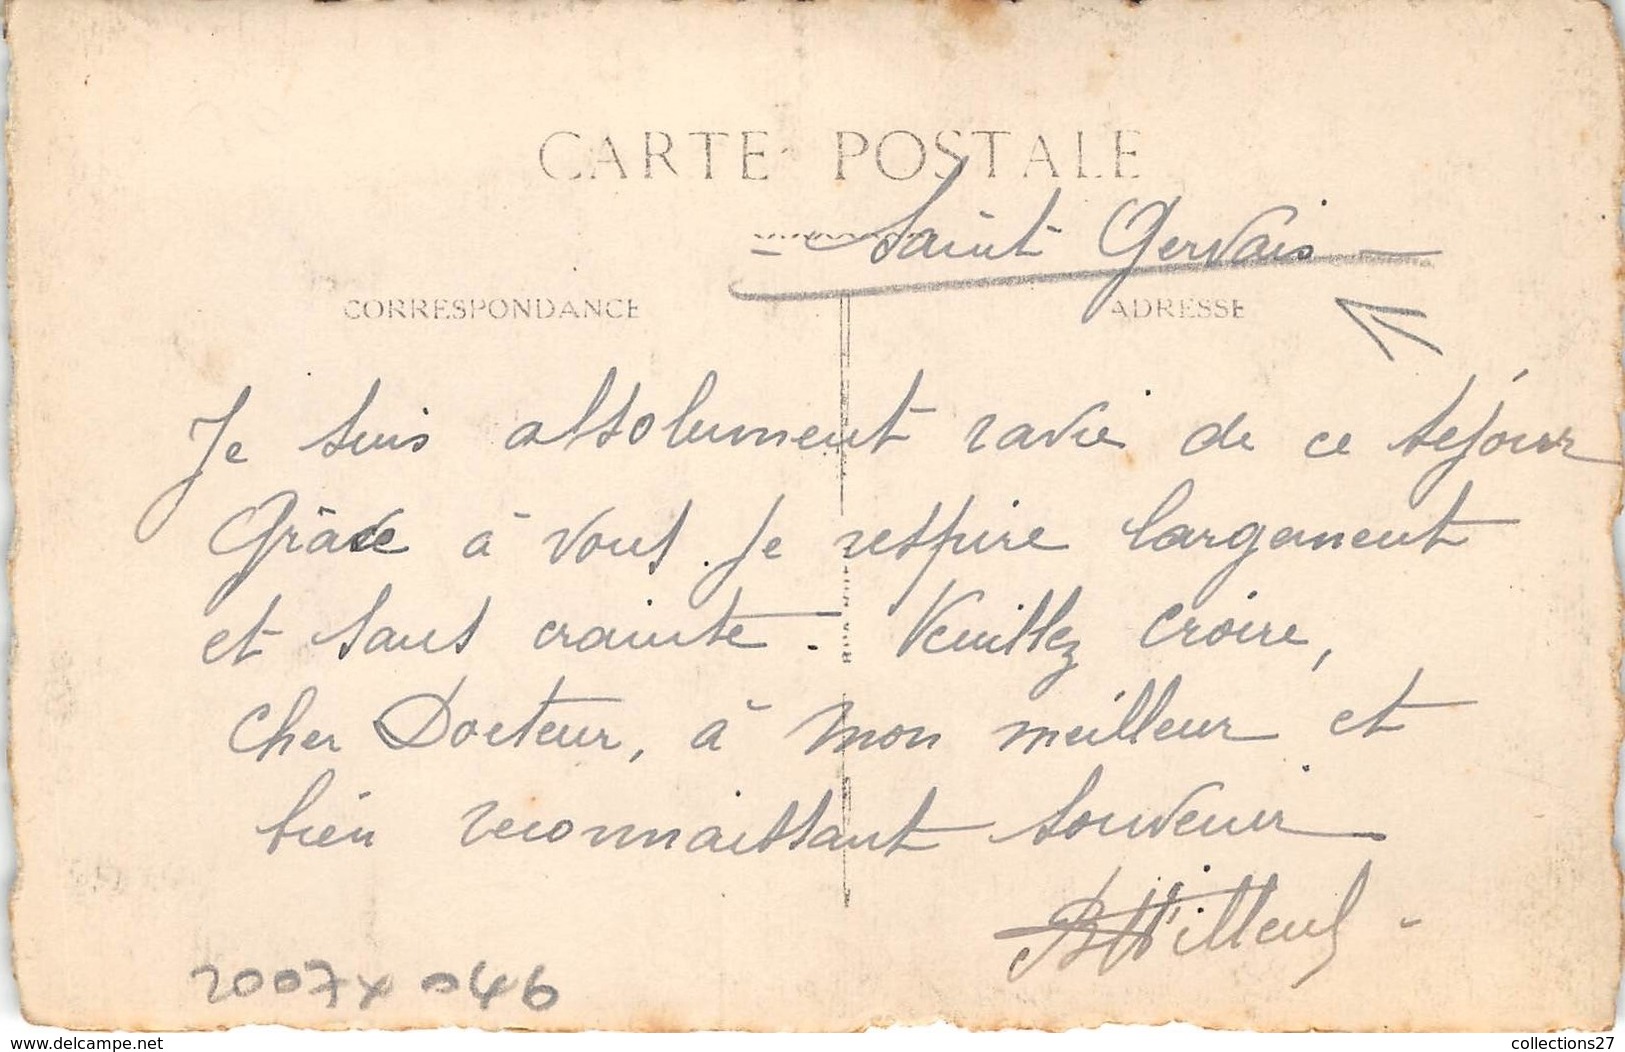 CARTE POSTALE
Saint Gervais
CORRESPONDANCE
ADRESSE
Je suis absolument ravie de ce séjour
Grâce à vous. Je respire largement
et sans crainte. Veuillez croire,
cher Docteur, à mon meilleur et
bien reconnaissant souvenir
2007x 046
www.delcampe.net
collections27